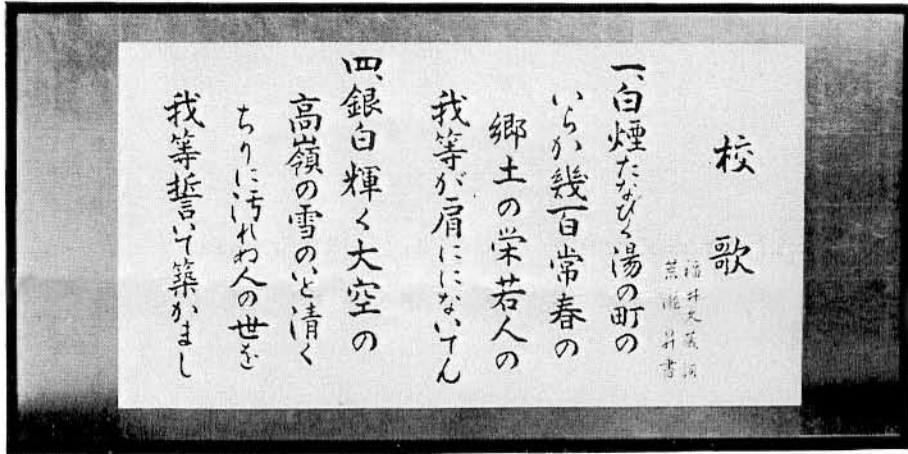 校歌
福井久英詞
荒瀬昇書
一、白煙たなびく湯の町の
いらか幾百常春の
郷土の栄若人の
我等が肩ににないてん
四、銀白輝く大空の
高嶺の雪のいと清く
ちりに汚れぬ人の世を
我等誓いて築かまし